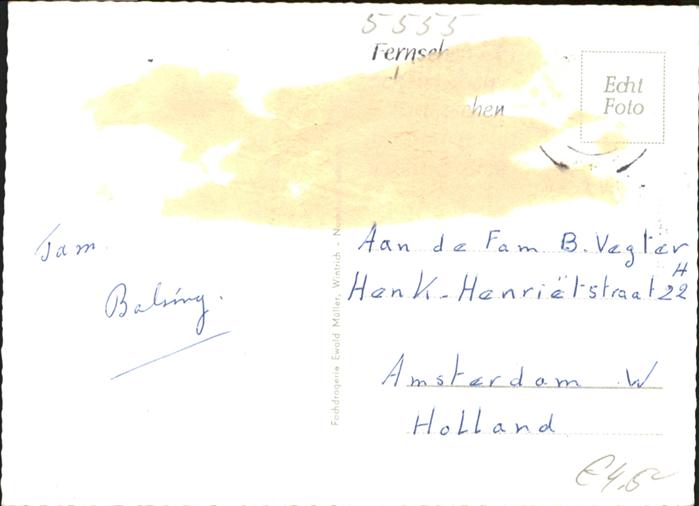 5555
Echt
Foto
Fam.
Balsing.
Fachdrogerie Ewald Müller, Wintrich -
Aan de Fam B. Vegter
Henk-Henriëtstraat 22 H
Amsterdam W
Holland